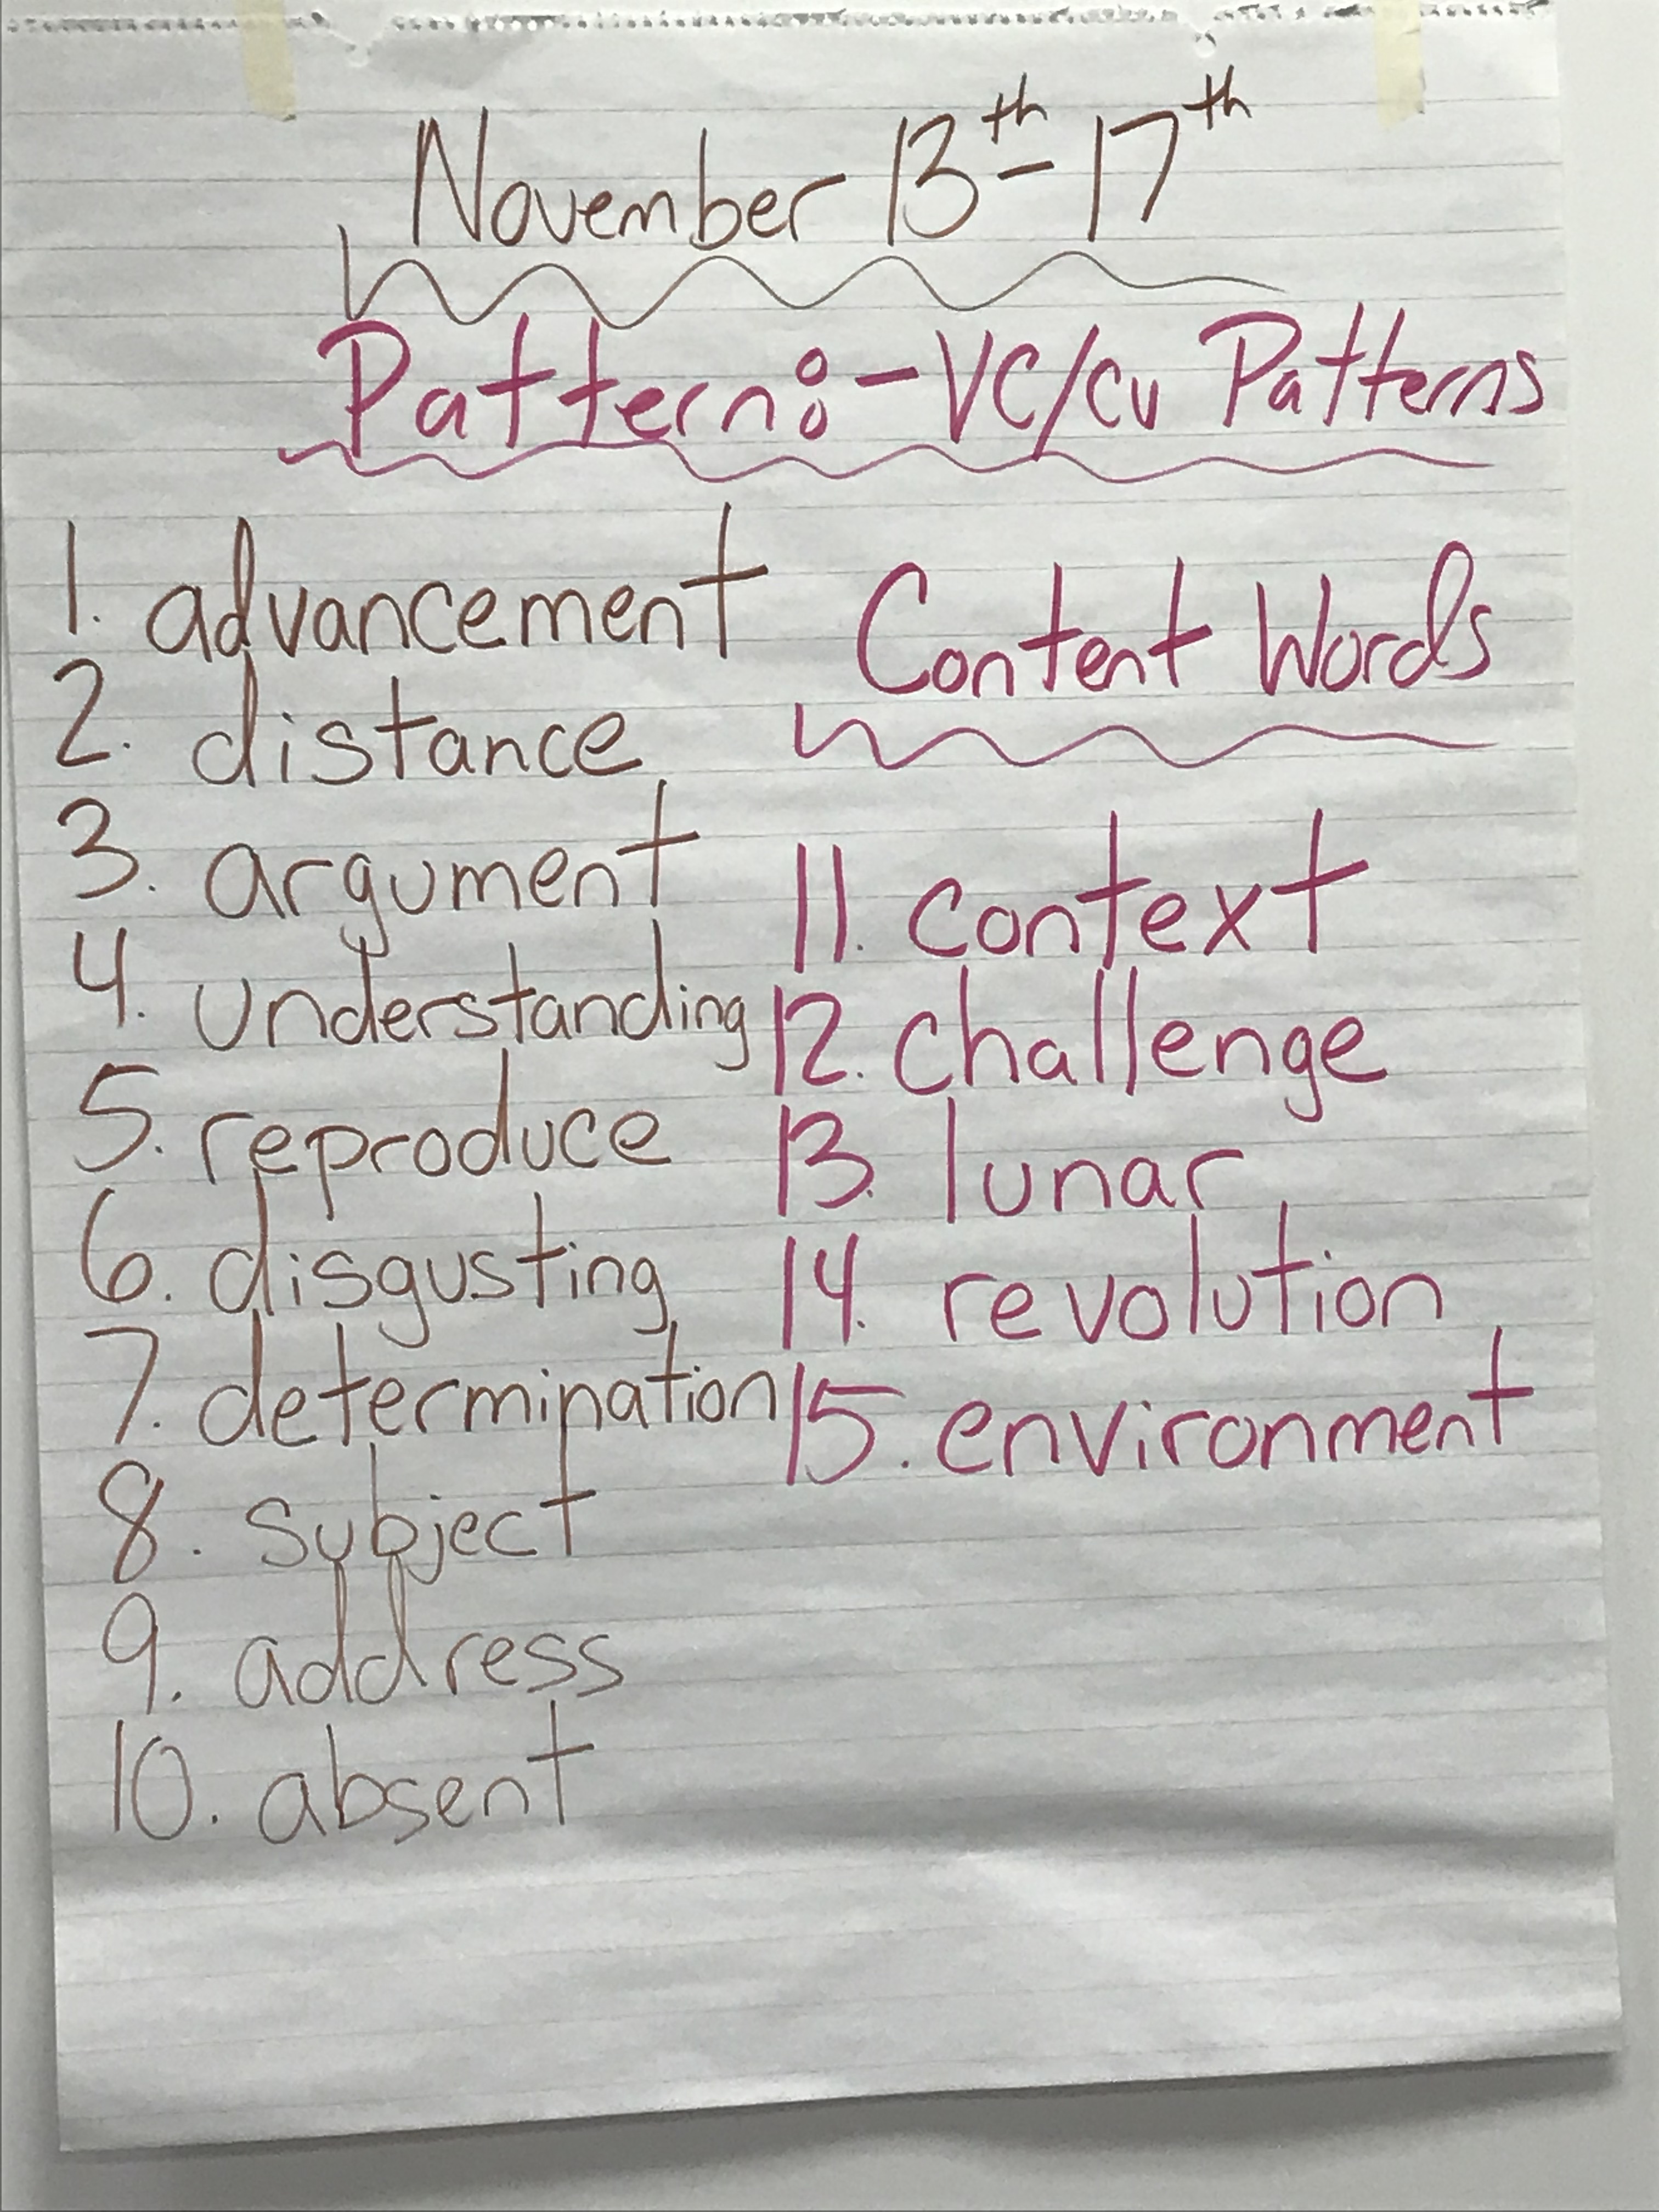 November 13th - 17th
Pattern: - VC/CV Patterns
1. advancement
2. distance
3. argument
4. understanding
5. reproduce
6. disgusting
7. determination
8. subject
9. address
10. absent
Content Words
11. context
12. challenge
13. lunar
14. revolution
15. environment